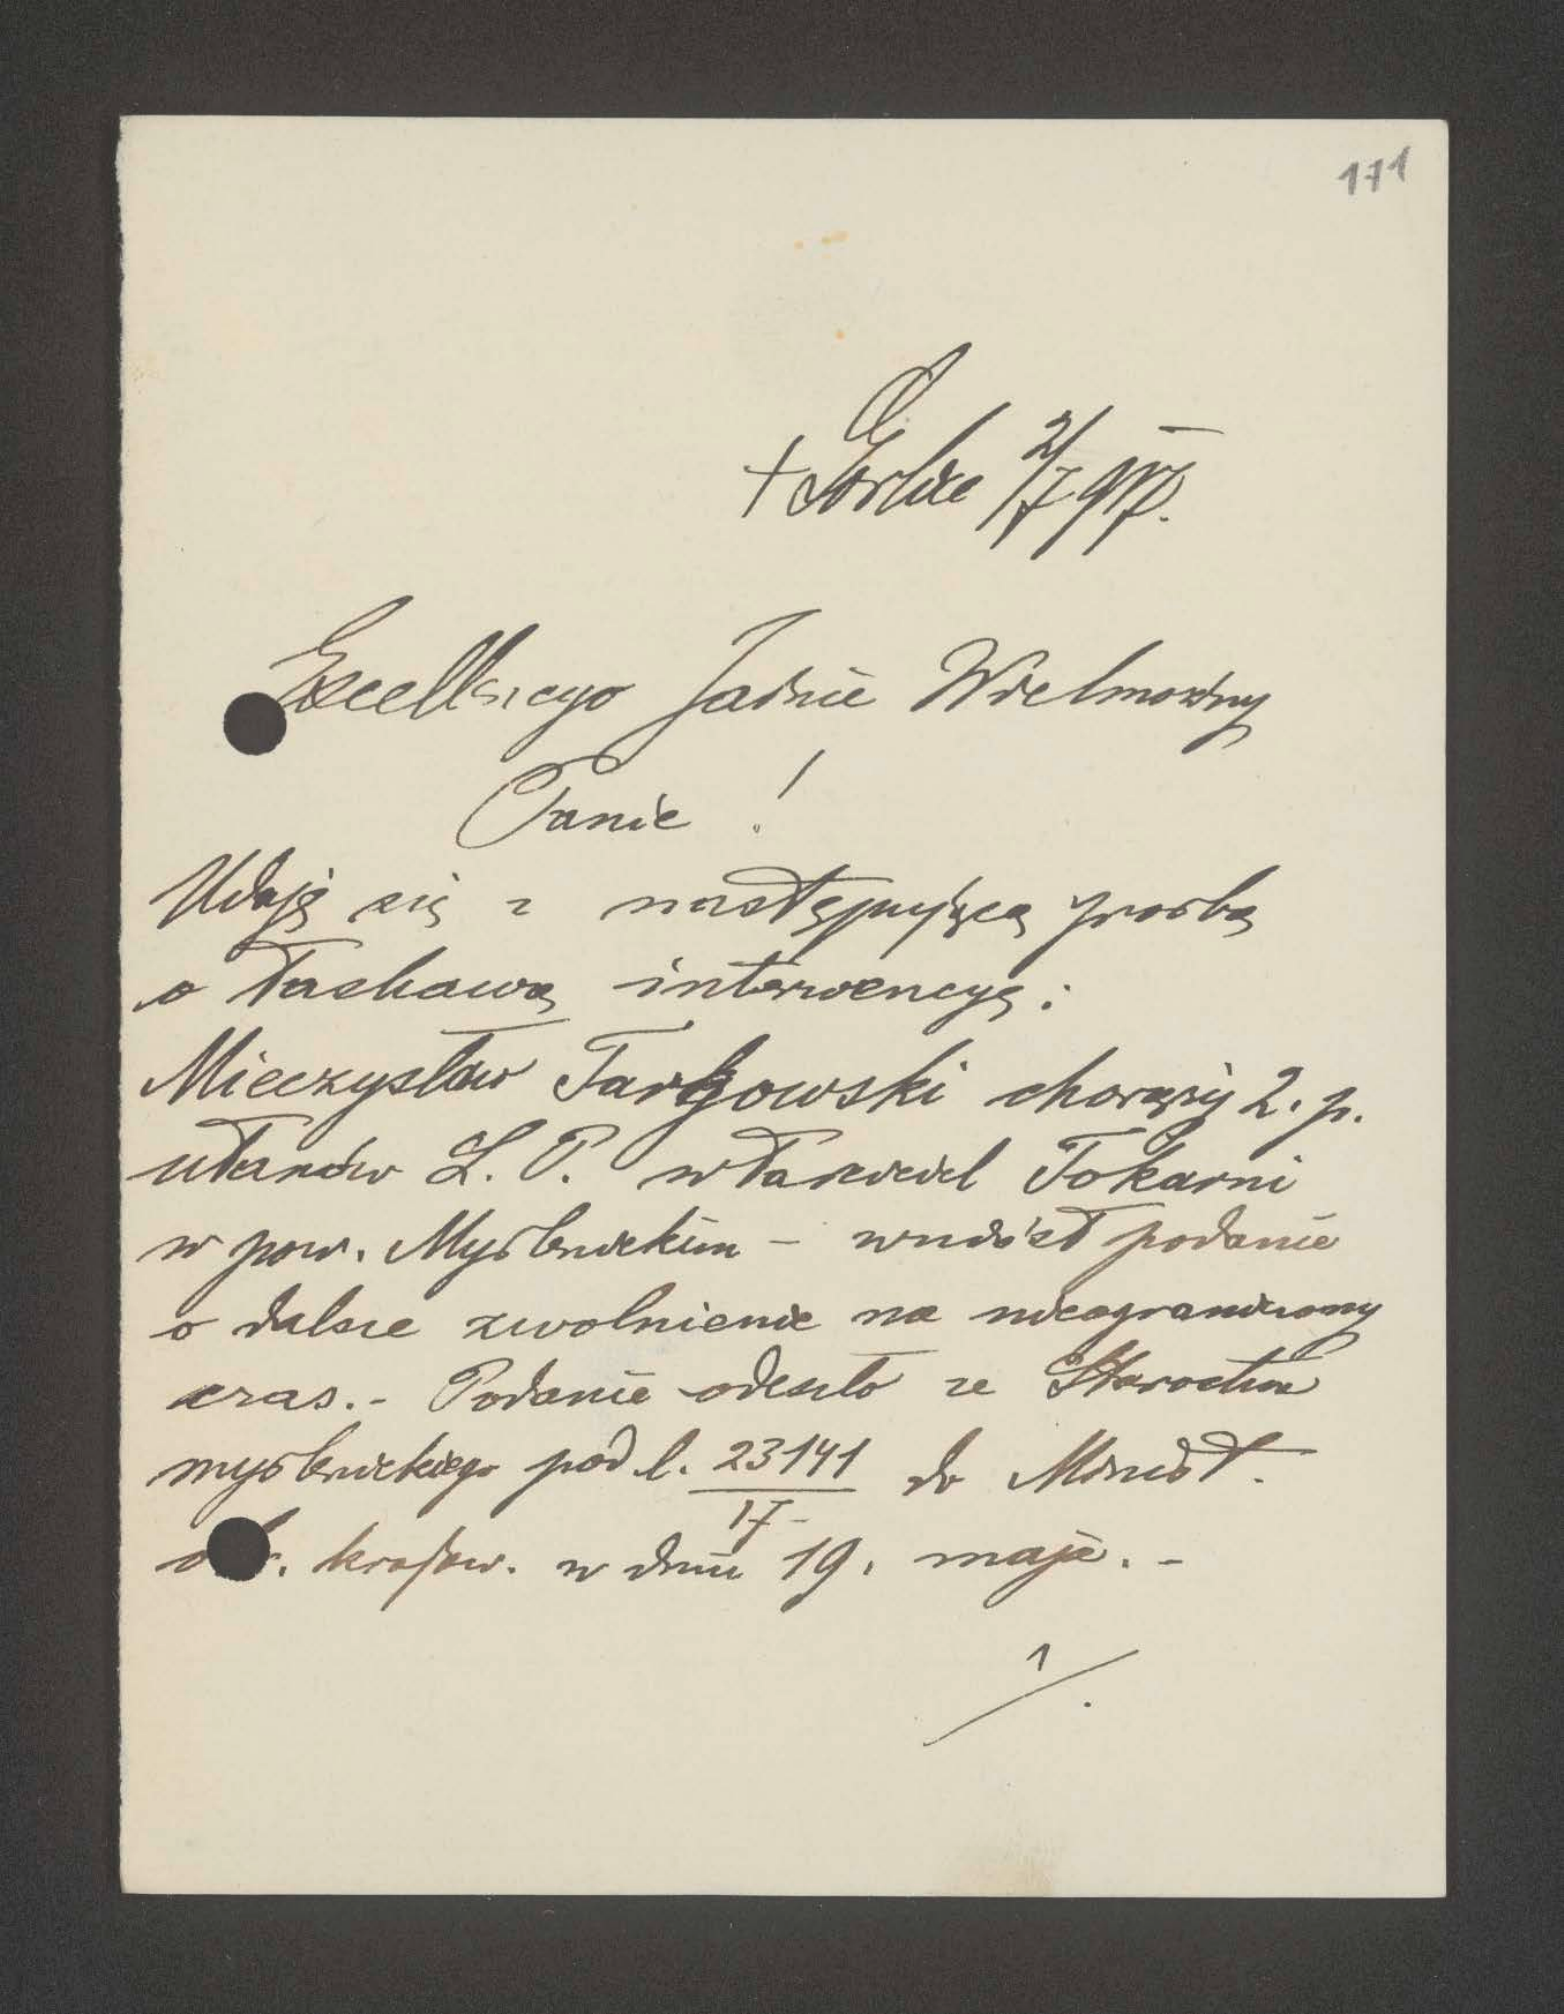 171
+ Gorlice 2/7 917.
Jaśnie Wielmożny
Panie !
Udaję się z następującą prośbą
o łaskawą interwencyę :
Mieczysław Targowski chorąży 2. p.
ułanów L. P. właściciel Tokarni
w pow. Myślenickim – wniósł podanie
o dalsze zwolnienie na nieograniczony
czas. - Podanie odeszło ze Starostwa
myślenickiego pod l. 23141/17 do Minist.
krajow. w dniu 19. maja. -
1/.